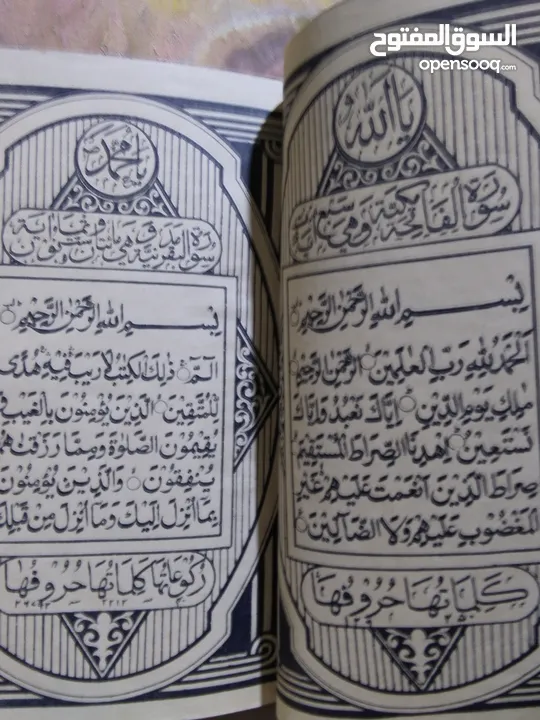 السوق المفتوح
opensooq.com
يا الله
سورة الفاتحة مكية وهي سبع اية
بِسْمِ اللهِ الرَّحْمٰنِ الرَّحِيْمِ
اَلْحَمْدُ لِلّٰهِ رَبِّ الْعٰلَمِيْنَ الرَّحْمٰنِ الرَّحِيْمِ
مٰلِكِ يَوْمِ الدِّيْنِ اِيَّاكَ نَعْبُدُ وَاِيَّاكَ
نَسْتَعِيْنُ اِهْدِنَا الصِّرَاطَ الْمُسْتَقِيْمَ
صِرَاطَ الَّذِيْنَ اَنْعَمْتَ عَلَيْهِمْ غَيْرِ
الْمَغْضُوْبِ عَلَيْهِمْ وَلَا الضَّآلِّيْنَ
كلماتها حروفها
يا محمد
سورة البقرة مدنية وهي مائتان وست وثمانون اية
بِسْمِ اللهِ الرَّحْمٰنِ الرَّحِيْمِ
الٓمّٓ ذٰلِكَ الْكِتٰبُ لَا رَيْبَ فِيْهِ هُدًى
لِّلْمُتَّقِيْنَ الَّذِيْنَ يُؤْمِنُوْنَ بِالْغَيْبِ وَ
يُقِيْمُوْنَ الصَّلٰوةَ وَمِمَّا رَزَقْنٰهُمْ
يُنْفِقُوْنَ وَالَّذِيْنَ يُؤْمِنُوْنَ
بِمَآ اُنْزِلَ اِلَيْكَ وَمَآ اُنْزِلَ مِنْ قَبْلِكَ
ركوعاتها كلماتها حروفها